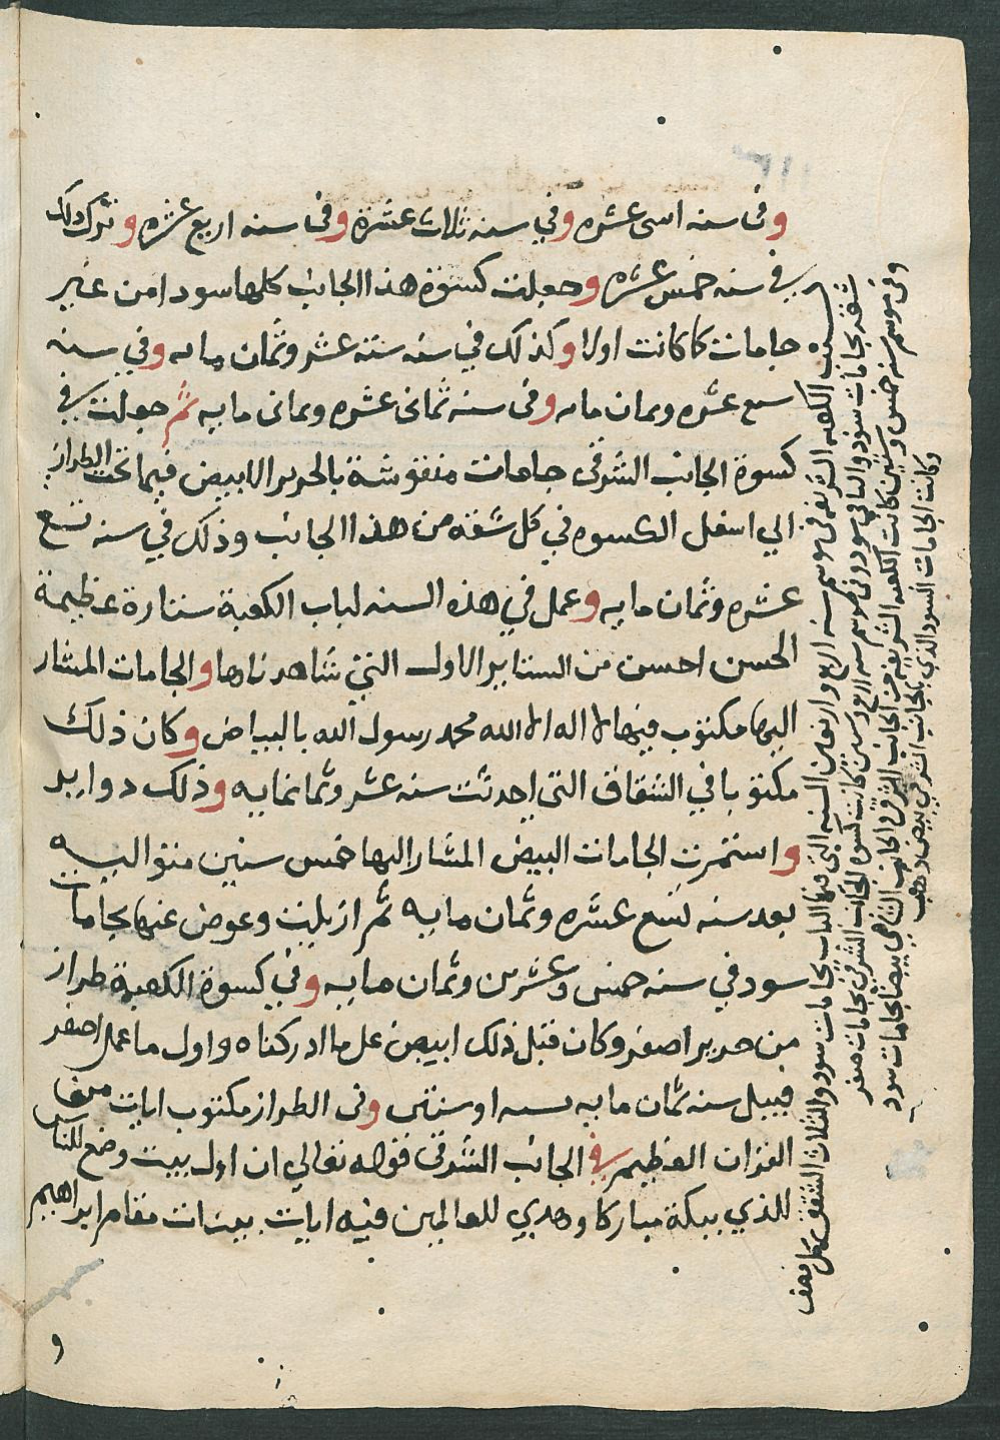 وفى سنه اسى عشره وفي سنه ثلاث عشرة وفى سنه اربع عشره وترك ذلك
في سنه خمس عشره وجعلت كسوة هذا الجانب كلها سودا من غير
جامات كما كانت اولا وكذلك في سنه ستة عشر وثمان مايه وفي سنه
سبع عشره وثمان مايه وفى سنه ثمانى عشره وثمانى مايه ثم جعلت في
كسوة الجانب الشرقى جامات منقوشة بالحرير الابيض فيما تحت الطراز
الي اسفل الكسوه في كل شقه من هذا الجانب وذلك في سنه تسع
عشره وثمان مايه وعمل في هذه السنه لباب الكعبة ستارة عظيمة
الحسن احسن من الستاير الاول التي شاهدناها والجامات المشار
اليها مكتوب فيها لا اله الا الله محمد رسول الله بالبياض وكان ذلك
مكتوبا في الشقاق التي احدثت سنه عشر وثمانمايه وذلك دواير
واستمرت الجامات البيض المشار اليها خمس سنين متواليه
بعد سنه تسع عشره وثمان مايه ثم ازيلت وعوض عنها بجامات
سود في سنه خمس وعشرين وثمان مايه وفي كسوة الكعبة طراز
من حرير اصفر وكان قبل ذلك ابيض على ما ادركناه واول ما عمل اصفر
قبيل سنه ثمان مايه بسنه او سنتين وفى الطراز مكتوب ايات من
القران العظيم في الجانب الشرقى قوله تعالي ان اول بيت وضع للناس
للذي ببكة مباركا وهدي للعالمين فيه ايات بينات مقام ابراهيم
و
الكعبه الشريفه في موسم سنه اربع واربعين السنه التي فيها الباب بجامات سود والثلاث الشقق كل نصف
شقه بجامات سود والباقي سود وفي موسم سنه اربع وستين كانت كسوة الجانب الشرقي بجامات صفر
وفى موسم سنه خمس وستين كانت الكعبه الشريفه من الجانب الشرقي والجانب الشامي بيضا بجامات سود
وكانت الجامات السود الذي بالجانب الشرقي بيض وذهب